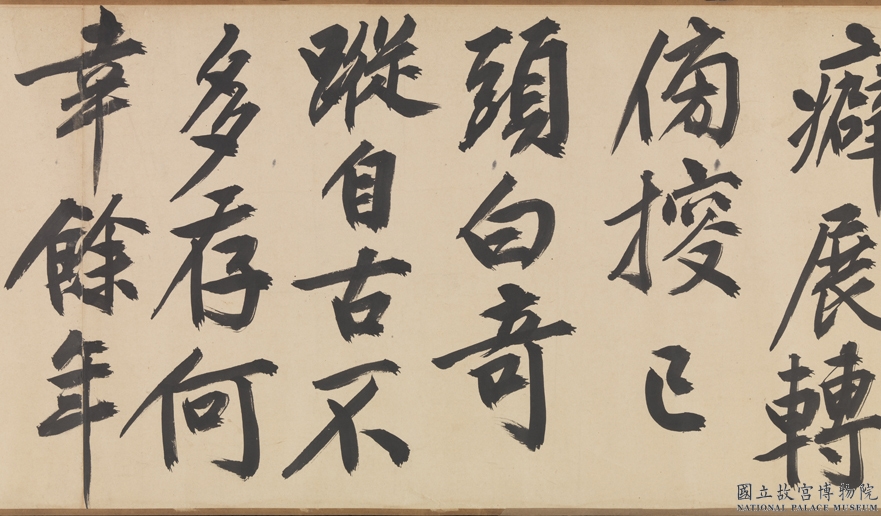 癖展轉
傍搜已
頭白奇
蹤自古不
多存何
幸餘年
國立故宮博物院
NATIONAL PALACE MUSEUM